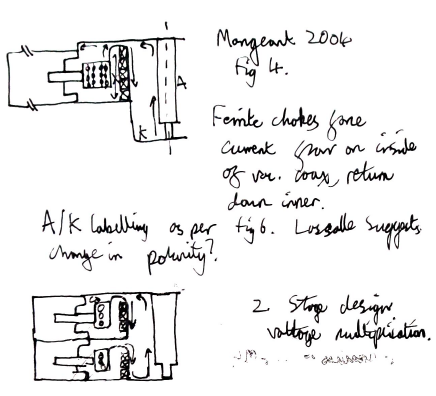 Mangeant 2004
fig 4.
A
K
Ferrite chokes force
current flow on inside
of vac. coax, return
down inner.
A/K labelling as per fig 6. Lassalle suggests
change in polarity?
2 Stage design
voltage multiplication.